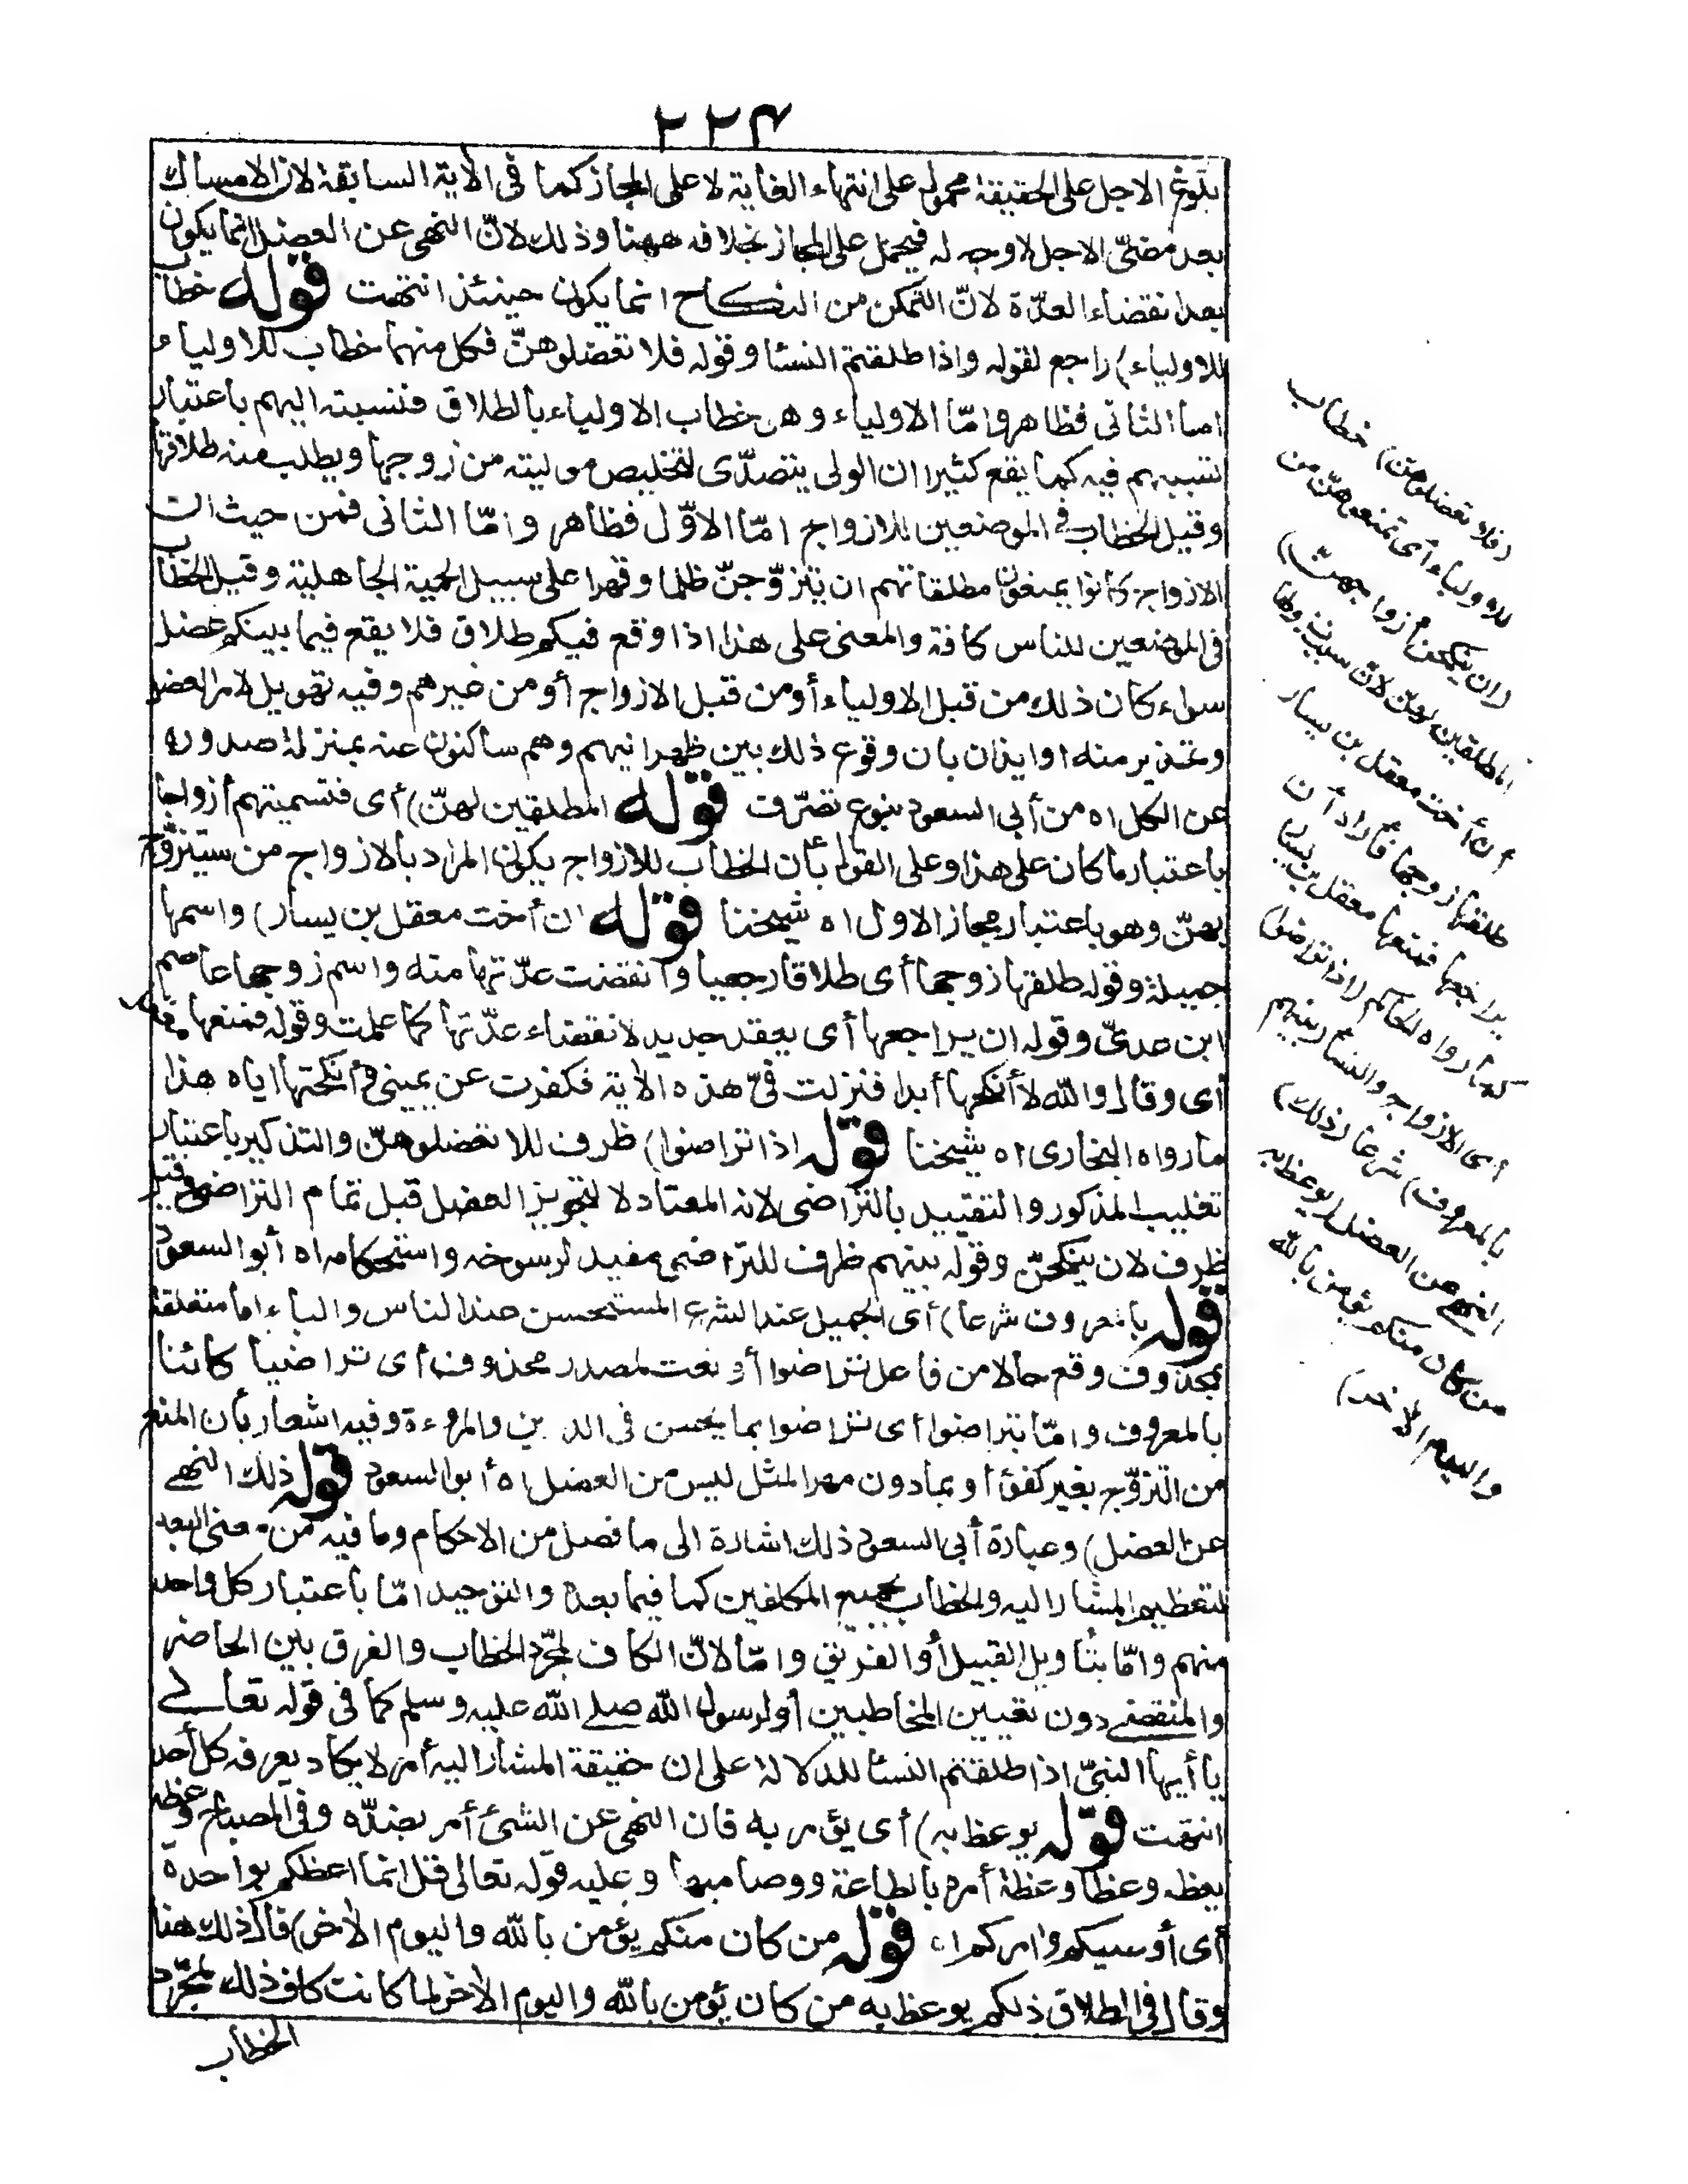 ٢٢٤
بلوغ الاجل على الحقيقة محمول على انتهاء الغاية لا على المجاز كما فى الاية السابقة لان الامساك
بعد مضىّ الاجل لا وجه له فيحمل على المجاز بخلافه ههنا وذلك لانّ النهى عن العضل انما يكون
بعد انقضاء العدّة لانّ التمكن من النكاح انما يكون حينئذ انتهت قوله خطاب
للاولياء) راجع لقوله واذا طلقتم النسا وقوله فلا تعضلوهنّ فكل منهما خطاب للاولياء
اما الثانى فظاهر وامّا الاولياء وهن خطاب الاولياء بالطلاق فنسبته اليهم باعتبار
تسببهم فيه كما يقع كثيرا ان الولى يتصدّى لتخليص موليته من زوجها ويطلب منه طلاقها
وقيل الخطاب فى الموضعين للازواج امّا الاوّل فظاهر وامّا الثانى فمن حيث ان
الازواج كانوا يمنعون مطلقاتهم ان يتزوّجنّ ظلما وقهرا على سبيل الحمية الجاهلية وقيل الخطاب
فى الموضعين للناس كافة والمعنى على هذا اذا وقع فيكم طلاق فلا يقع فيما بينكم عضل
سواء كان ذلك من قبل الاولياء أو من قبل الازواج أو من غيرهم وفيه تهويل لامر العضل
وتحذير منه اوايذان بان وقوع ذلك بين ظهرانيهم وهم ساكنون عنه بمنزلة صدوره
عن الكل اه من أبى السعود بنوع تصرّف قوله المطلقين لهنّ) أى فتسميتهم أزواجا
باعتبار ما كان على هذا وعلى القول بأن الخطاب للازواج يكون المراد بالازواج من سيتزوّج
بهنّ وهو باعتبار مجاز الاول اه شيخنا قوله ان أخت معقل بن يسار) واسمها
جميلة وقوله طلقها زوجها أى طلاقا رجعيا وانقضت عدّتها منه واسم زوجها عاصم
ابن عدىّ وقوله ان يراجعها أى بعقد جديد لانقضاء عدّتها كما علمت وقوله فمنعها معقل
أى وقال والله لا أنكحها أبدا فنزلت فىّ هذه الاية فكفرت عن يمينى وأنكحتها اياه هذا
ما رواه البخارى اه شيخنا قوله اذا تراضوا) ظرف للا تعضلوهنّ والتذكير باعتبار
تغليب المذكور والتقييد بالتراضى لانه المعتاد لا لتجويز العضل قبل تمام التراضى وقيل
ظرف لان ينكحنّ وقوله بينهم ظرف للتراضى مفيد لرسوخه واستحكامه اه أبو السعود
قوله بالمعروف شرعا) أى الجميل عند الشرع المستحسن عند الناس والباء اما متعلقة
بمحذوف وقع حالا من فاعل تراضوا أو نعت لمصدر محذوف أى تراضيا كائنا
بالمعروف وامّا بتراضوا أى تراضوا بما يحسن فى الدين والمروءة وفيه اشعار بأن المنع
من التزوّج بغير كفؤ أو بما دون مهر المثل ليس من العضل اه أبو السعود قوله ذلك النهى
عن العضل) وعبارة أبى السعود ذلك اشارة الى ما فصل من الاحكام وما فيه من معنى البعد
لتعظيم المشار اليه والخطاب لجميع المكلفين كما فيما بعده والتوحيد امّا باعتبار كل واحد
منهم وامّا بتأويل القبيل أو الفريق وامّا لانّ الكاف لمجرّد الخطاب والفرق بين الحاضر
والمنقضى دون تعيين المخاطبين أو لرسول الله صلى الله عليه وسلم كما فى قوله تعالى
يا أيها النبىّ اذا طلقتم النسا للدلالة على ان حقيقة المشار اليه أمر لا يكاد يعرفه كل أحد
انتهت قوله يوعظ به) أى يؤمر به فان النهى عن الشئ أمر بضدّه وفى المصباح وعظه
يعظه وعظا وعظة أمره بالطاعة ووصاه بها وعليه قوله تعالى قل انما اعظكم بواحدة
أى أوصيكم وامركم اه قوله من كان منكم يؤمن بالله واليوم الاخر) قال ذلك هنا
وقال فى الطلاق ذلكم يوعظ به من كان يؤمن بالله واليوم الاخر لما كانت كاف ذلك لمجرّد
الخطاب
(فلا تعضلوهنّ) خطاب
للاولياء أى تمنعوهنّ من
(ان ينكحن أزواجهنّ)
المطلقين لهنّ لانّ سبب نزولها
أن أخت معقل بن يسار
طلقها زوجها فأراد أن
يراجعها فمنعها معقل بن يسار
كما رواه الحاكم (اذا تراضوا)
أى الازواج والنسا (بينهم
بالمعروف) شرعا (ذلك)
النهى عن العضل (يوعظ به
من كان منكم يؤمن بالله
واليوم الاخر)